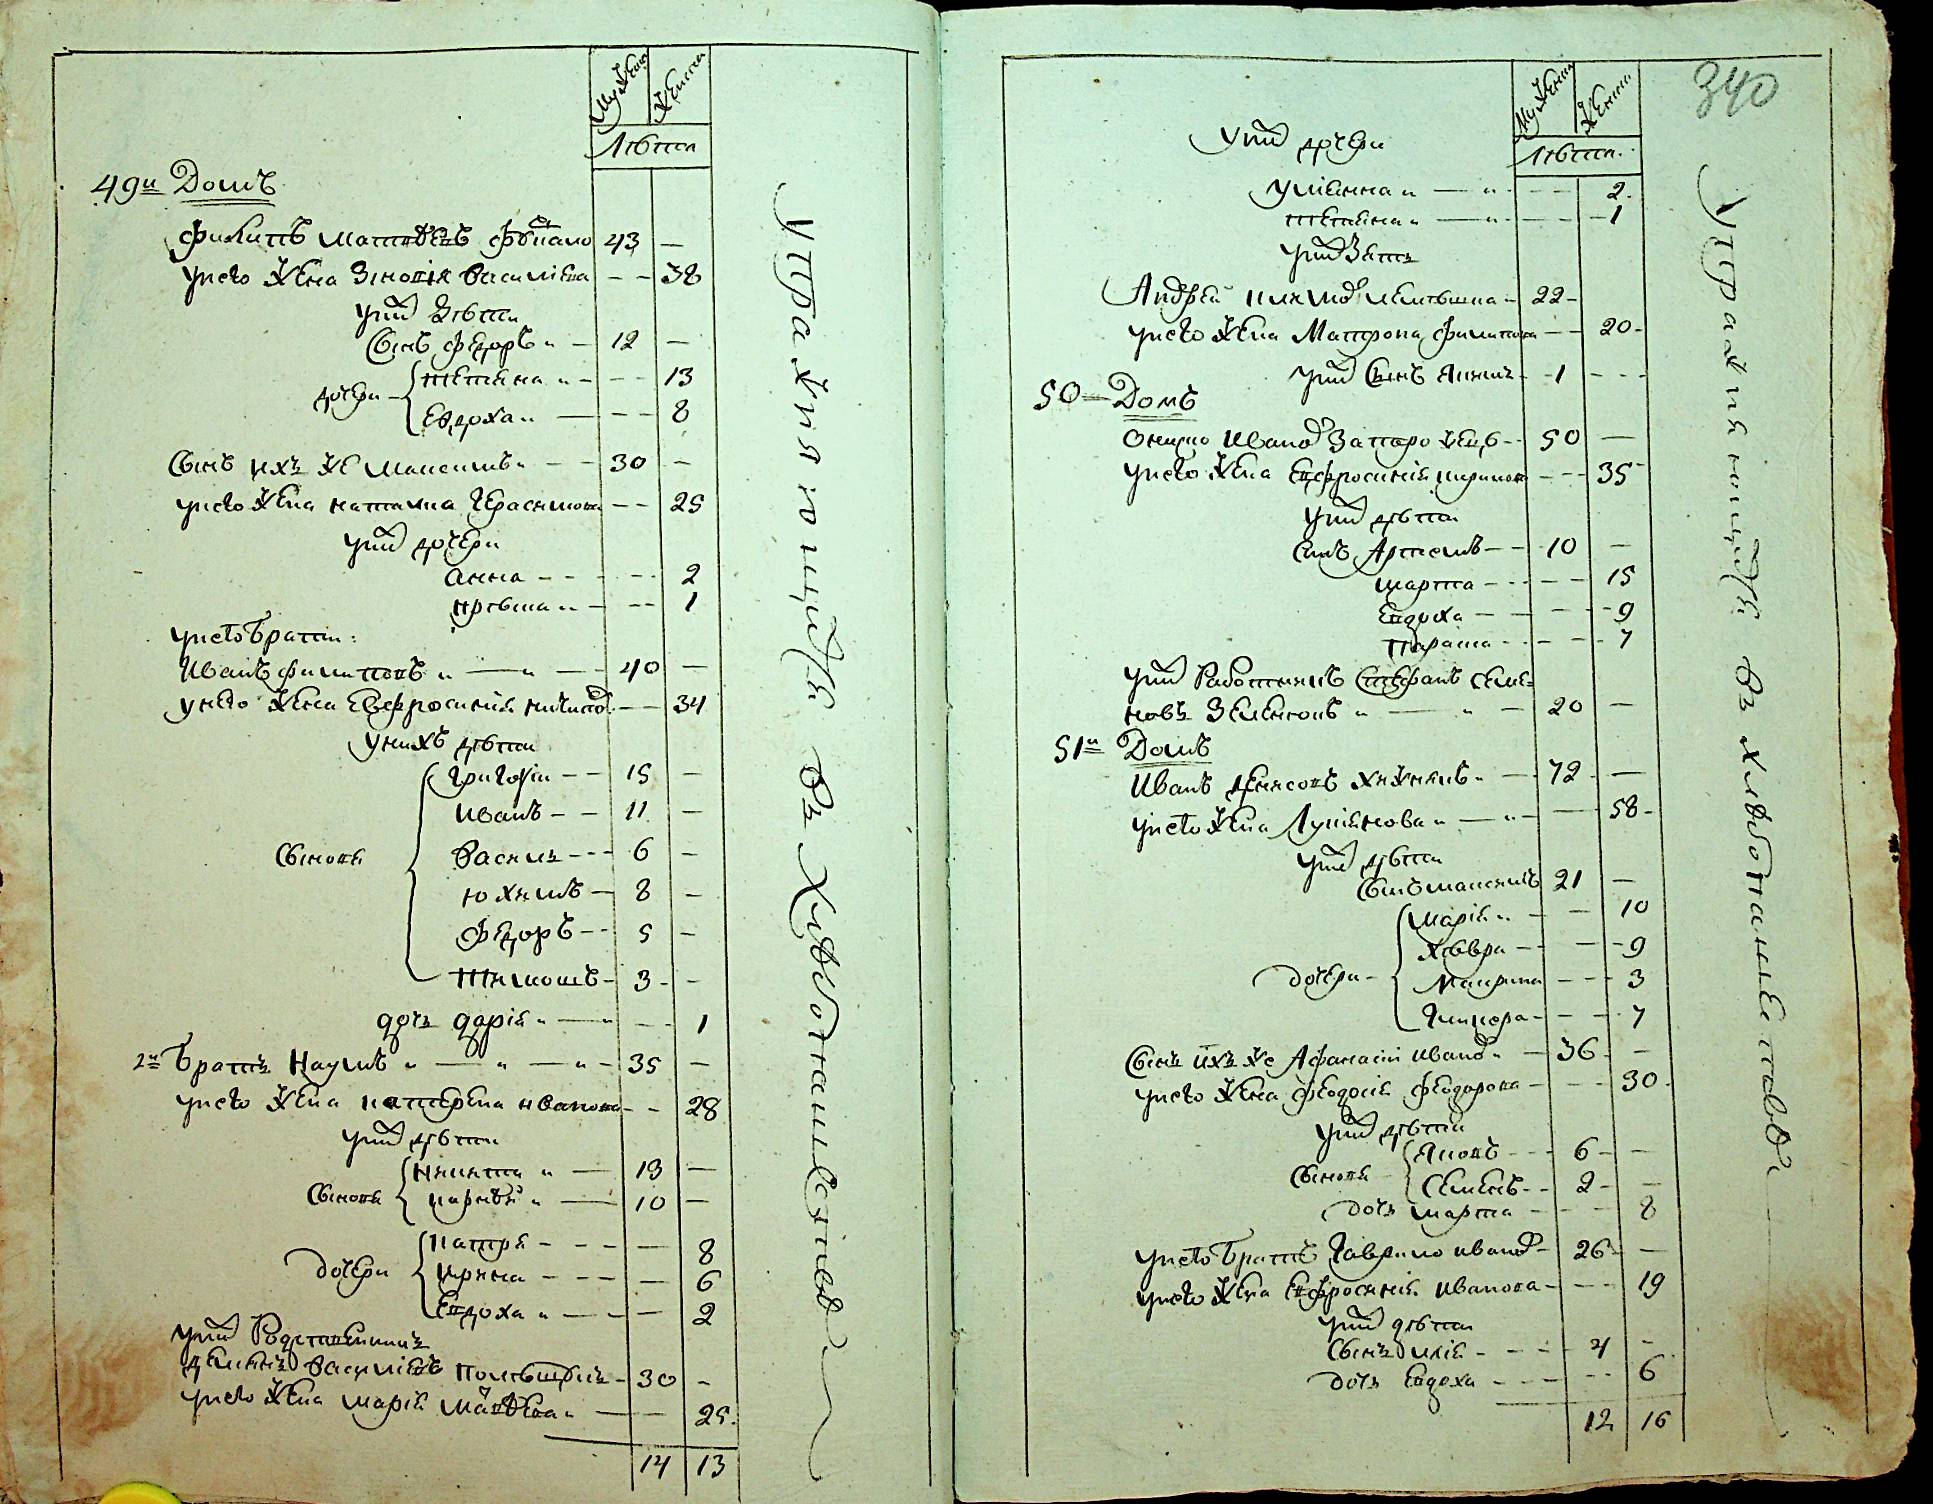 Мужеск Женск
Лѣта
49й Домъ
Филипъ Матвѣевъ 43 —
У него Жена Зѣновія Василіева — — 38
У них Дѣти
Сынъ Федоръ „ — 12 —
дочери Тетяна „ — — — 13
Евдоха „ — — — 8
Сынъ ихъ же Максимъ „ — — 30 —
У него Жена Наталка Герасимова — — 25
У них дочери
Анна — — — — 2
Крѣвша „ — — — 1
У него Брати:
Иванъ Филиповъ „ — „ — 40 —
У него Жена Евфросинія — — 34
У нихъ дѣти
Сыновя
Григорій — — 15 —
Иванъ — — 11 —
Василь — — — 6 —
Юхимъ — 8 —
Федоръ — — 5 —
Тимошъ — 3 — —
дочь Дарія „ — — — 1
2й Братъ Наумъ „ — „ — „ — 35 —
У него Жена Катерена Иванова — — 28
У них дѣти
Сыновя Никита „ — 13 —
Карнѣй „ — 10 —
Дочери
Катря — — — — 8
Ирина — — — — 6
Евдоха „ — — — 2
У них Родственникъ
Демянъ Василіевъ — 30 —
У него Жена Марія — — 25
14 13
Упражняющийся въ Хлѣбопашествѣ
340
Мужеск Женск
Лѣта
У них дочери
Уліянна „ — „ — — 2
Тетяна „ — „ — — 1
У них Зять
Андрей — 22 —
У него Жена Матрона Филипова — — 20 —
У них Сынъ Якимъ — 1 — — —
50 — Домъ
Онцко Иванов Запорожецъ — 50 —
У него Жена Евфросинія — — — 35
У них дѣти
Сынъ Артемъ — — 10 —
Марта — — — — 15
Евдоха — — — — 9
Параша — — — — 7
У них Работникъ Стефанъ Семе-
новъ Зеленконъ „ — „ — 20 —
51й Домъ
Иванъ Денисовъ Хижнякъ „ — 72 —
У него Жена Лукіянова „ — „ — 58 —
У них дѣти
Сынъ Максимъ 21 —
Дочери —
Марія „ — — 10
Хѣвра — — — 9
Маирина — — — 3
Гликера — — — 7
Сынъ ихъ же Афанасій Иванов „ — 36 —
У него Жена Феодосія Феодорова — — — 30
У них дѣти
Сыновя
Яковъ — — — 6 — —
Семенъ — — 2 — —
Дочь Марта — — — — 8
У него Братъ Гаврило Иванов — 26 —
У него Жена Евфросинія Иванова — — — 19
У них дѣти
Сынъ Илія — — — — 4 —
Дочь Евдоха — — — — — 6
12 16
Упражняющийся въ хлѣбопашествѣ